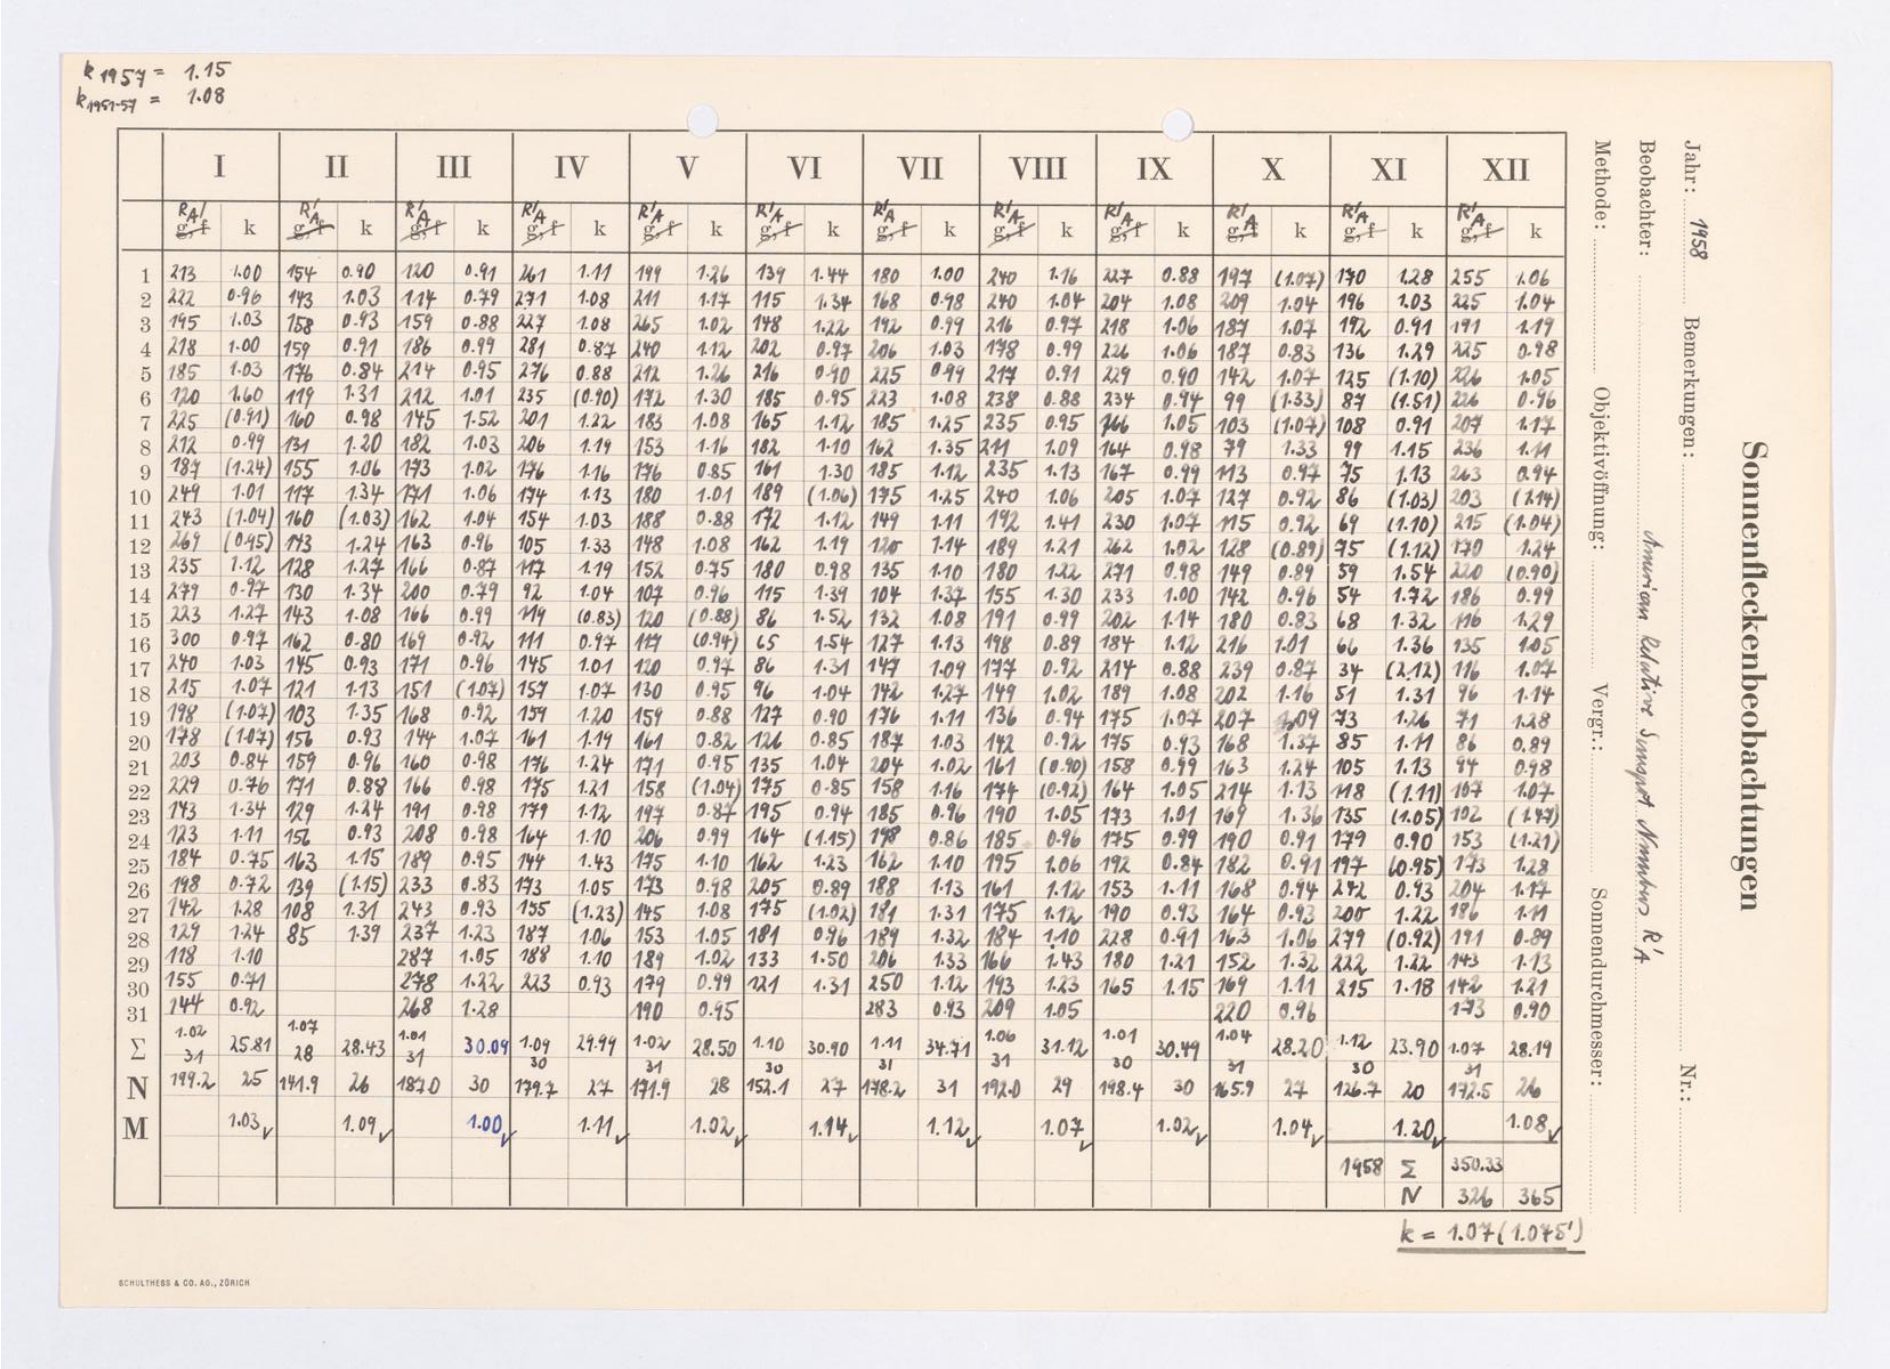 k 1957 = 1.15
k 1951-57 = 1.08
Sonnenfleckenbeobachtungen
Jahr: 1958 Bemerkungen: Nr.:
Beobachter: American Relative Sunspot Numbers R'A
Methode: Objektivöffnung: Vergr.: Sonnendurchmesser:
I II III IV V VI VII VIII IX X XI XII
RA' R'A R'A R'A R'A R'A R'A R'A R'A R'A R'A R'A
g, f k g, f k g, f k g, f k g, f k g, f k g, f k g, f k g, f k g, f k g, f k g, f k
1 213 1.00 154 0.90 120 0.91 261 1.11 199 1.26 139 1.44 180 1.00 240 1.16 227 0.88 197 (1.07) 170 1.28 255 1.06
2 222 0.96 143 1.03 114 0.79 271 1.08 211 1.17 115 1.34 168 0.98 240 1.04 204 1.08 209 1.04 196 1.03 225 1.04
3 195 1.03 158 0.93 159 0.88 227 1.08 265 1.02 148 1.22 192 0.99 216 0.97 218 1.06 187 1.07 192 0.91 191 1.19
4 218 1.00 159 0.91 186 0.99 281 0.87 240 1.12 202 0.97 206 1.03 178 0.99 226 1.06 187 0.83 136 1.29 225 0.98
5 185 1.03 176 0.84 214 0.95 276 0.88 212 1.26 216 0.90 225 0.99 217 0.91 229 0.90 142 1.07 125 (1.10) 226 1.05
6 120 1.60 119 1.31 212 1.01 235 (0.90) 172 1.30 185 0.95 223 1.08 238 0.88 234 0.94 99 (1.33) 87 (1.51) 226 0.96
7 225 (0.91) 160 0.98 145 1.52 201 1.22 183 1.08 165 1.12 185 1.25 235 0.95 166 1.05 103 (1.07) 108 0.91 207 1.17
8 212 0.99 131 1.20 182 1.03 206 1.19 153 1.16 182 1.10 162 1.35 211 1.09 164 0.98 79 1.33 99 1.15 236 1.11
9 187 (1.24) 155 1.06 173 1.02 176 1.16 176 0.85 161 1.30 185 1.12 235 1.13 167 0.99 113 0.97 75 1.13 263 0.94
10 249 1.01 117 1.34 171 1.06 174 1.13 180 1.01 189 (1.06) 175 1.25 240 1.06 205 1.07 127 0.92 86 (1.03) 203 (1.14)
11 243 (1.04) 160 (1.03) 162 1.04 154 1.03 188 0.88 172 1.12 149 1.11 192 1.41 230 1.07 115 0.92 69 (1.10) 215 (1.04)
12 269 (0.95) 143 1.24 163 0.96 105 1.33 148 1.08 162 1.19 120 1.14 189 1.21 262 1.02 128 (0.89) 75 (1.12) 170 1.24
13 235 1.12 128 1.27 166 0.87 117 1.19 152 0.75 180 0.98 135 1.10 180 1.22 271 0.98 149 0.89 59 1.54 220 (0.90)
14 279 0.97 130 1.34 200 0.79 92 1.04 107 0.96 115 1.39 104 1.37 155 1.30 233 1.00 142 0.96 54 1.72 186 0.99
15 223 1.27 143 1.08 166 0.99 119 (0.83) 120 (0.88) 86 1.52 132 1.08 191 0.99 202 1.14 180 0.83 68 1.32 116 1.29
16 300 0.97 162 0.80 169 0.92 111 0.97 117 (0.94) 65 1.54 127 1.13 198 0.89 184 1.12 216 1.01 66 1.36 135 1.05
17 240 1.03 145 0.93 171 0.96 145 1.01 120 0.97 86 1.31 147 1.09 177 0.92 214 0.88 239 0.87 34 (2.12) 116 1.07
18 215 1.07 121 1.13 151 (1.07) 157 1.07 130 0.95 96 1.04 142 1.27 149 1.02 189 1.08 202 1.16 51 1.31 96 1.14
19 198 (1.07) 103 1.35 168 0.92 159 1.20 159 0.88 127 0.90 176 1.11 136 0.94 175 1.07 207 1.09 73 1.26 71 1.28
20 178 (1.07) 156 0.93 144 1.07 161 1.19 161 0.82 126 0.85 187 1.03 142 0.92 175 0.93 168 1.37 85 1.11 86 0.89
21 203 0.84 159 0.96 160 0.98 176 1.24 171 0.95 135 1.04 204 1.02 161 (0.90) 158 0.99 163 1.24 105 1.13 94 0.98
22 229 0.76 171 0.88 166 0.98 175 1.21 158 (1.04) 175 0.85 158 1.16 174 (0.92) 164 1.05 214 1.13 118 (1.11) 107 1.07
23 143 1.34 129 1.24 191 0.98 179 1.12 197 0.87 195 0.94 185 0.96 190 1.05 173 1.01 169 1.36 135 (1.05) 102 (1.47)
24 123 1.11 156 0.93 208 0.98 164 1.10 206 0.99 164 (1.15) 198 0.86 185 0.96 175 0.99 190 0.91 179 0.90 153 (1.21)
25 184 0.75 163 1.15 189 0.95 144 1.43 175 1.10 162 1.23 162 1.10 195 1.06 192 0.84 182 0.91 197 (0.95) 173 1.28
26 198 0.72 139 (1.15) 233 0.83 173 1.05 173 0.98 205 0.89 188 1.13 161 1.12 153 1.11 168 0.94 242 0.93 204 1.17
27 142 1.28 108 1.31 243 0.93 155 (1.23) 145 1.08 175 (1.02) 181 1.31 175 1.12 190 0.93 164 0.93 200 1.22 186 1.11
28 129 1.24 85 1.39 237 1.23 187 1.06 153 1.05 181 0.96 189 1.32 184 1.10 228 0.91 163 1.06 279 (0.92) 191 0.89
29 118 1.10 287 1.05 188 1.10 189 1.02 133 1.50 206 1.33 166 1.43 180 1.21 152 1.32 222 1.22 143 1.13
30 155 0.71 278 1.22 223 0.93 179 0.99 121 1.31 250 1.12 193 1.23 165 1.15 169 1.11 215 1.18 142 1.21
31 144 0.92 268 1.28 190 0.95 283 0.93 209 1.05 220 0.96 173 0.90
1.02 1.07 1.01 1.09 1.02 1.10 1.11 1.06 1.01 1.04 1.12 1.07
Σ 25.81 28.43 30.09 29.99 28.50 30.90 34.71 31.12 30.49 28.20 23.90 28.19
31 28 31 30 31 30 31 31 30 31 30 31
N 199.2 25 141.9 26 187.0 30 179.7 27 171.9 28 152.1 27 178.2 31 192.0 29 198.4 30 165.9 27 126.7 20 172.5 26
M 1.03 1.09 1.00 1.11 1.02 1.14 1.12 1.07 1.02 1.04 1.20 1.08
1958 Σ 350.33
N 326 365
k = 1.07 (1.075')
SCHULTHESS & CO. AG., ZÜRICH